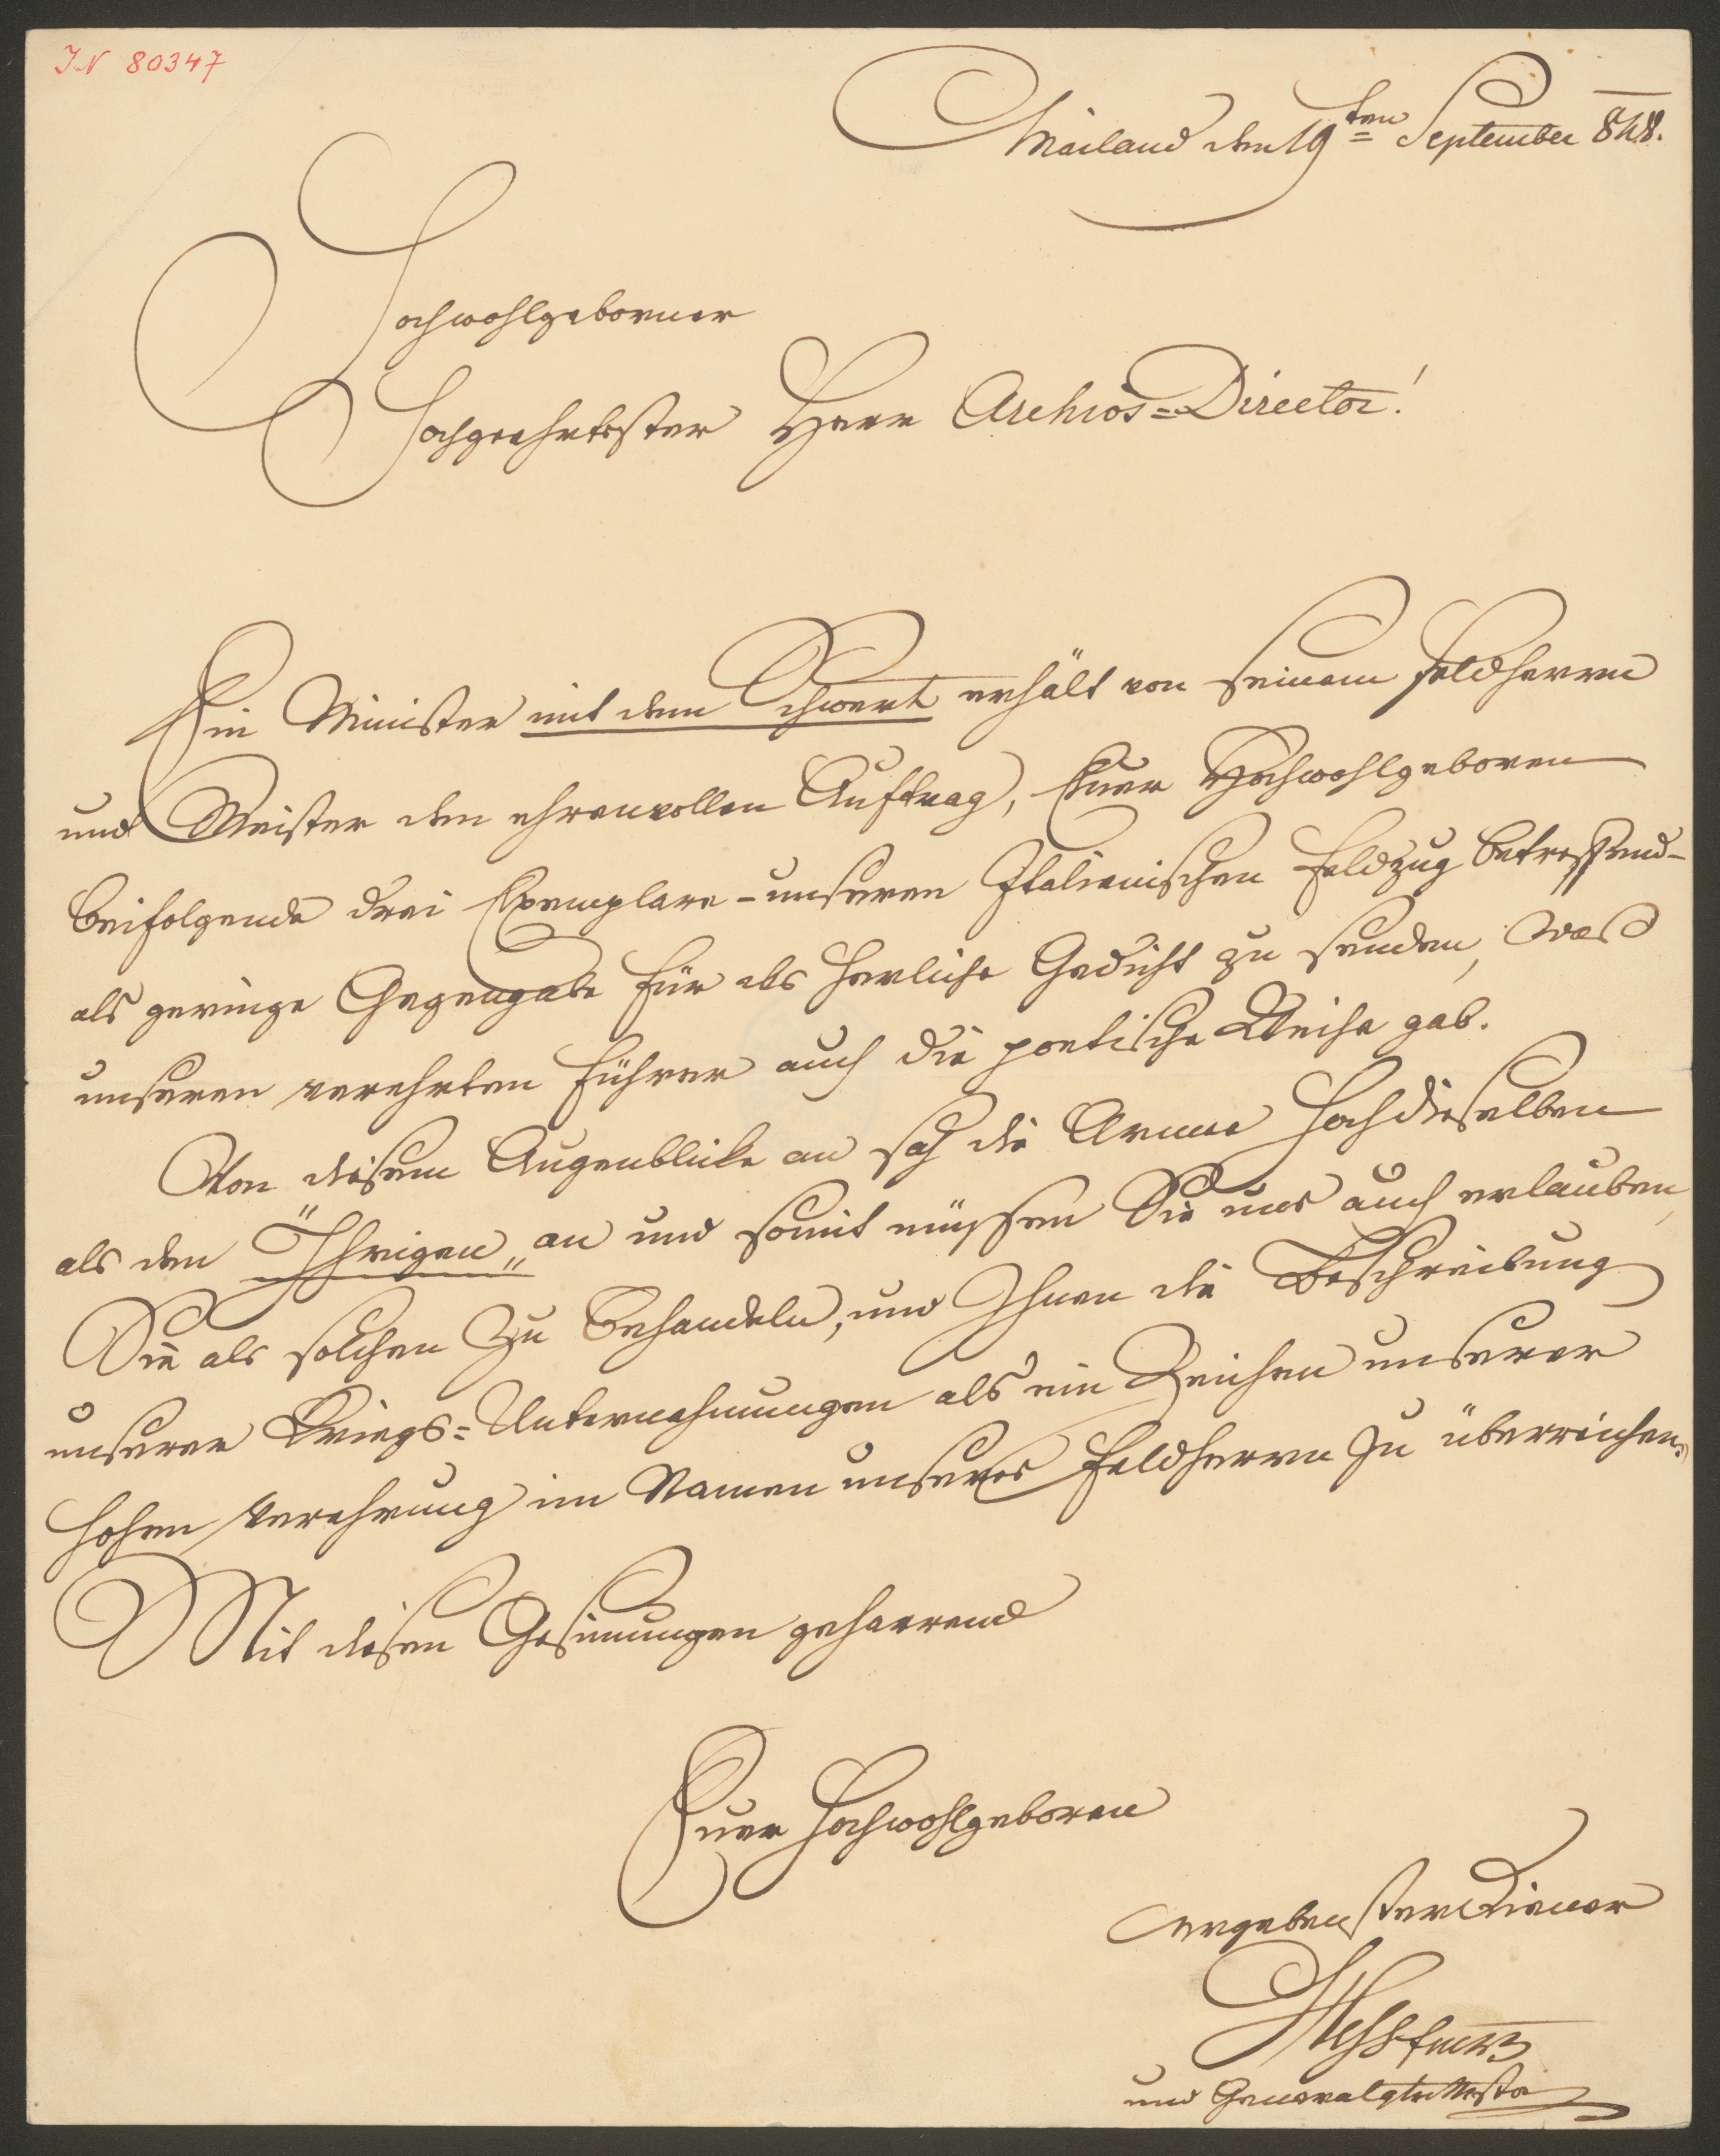 IN 80347
Mailand den 19ten September 848.
Hochwohlgeborner
Hochgeehrtester Herr Archivs=Director!
Ein Minister mit dem Schwert erhält von seinem Feldherrn
und Meister den ehrenvollen Auftrag, Euer Hochwohlgeboren
beifolgende drei Exemplare - unseren Italienischen Feldzug betreffend -
als geringe Gegengabe für das herliche Gedicht zu senden, was
unseren verehrten Führer auch die poetische Weihe gab.
Von diesem Augenblicke an sah die Armee Hochdieselben
als den "Ihrigen" an und somit müssen Sie uns auch erlauben,
Sie als solchen zu behandeln, und Ihnen die Beschreibung
unserer Kriegs=Unternehmungen als ein Zeichen unserer
hohen Verehrung im Namen unseres Feldherrn zu überreichen.
Mit diesen Gesinnungen geharrend
Euer Hochwohlgeboren
ergebenster Diener
Hess
und